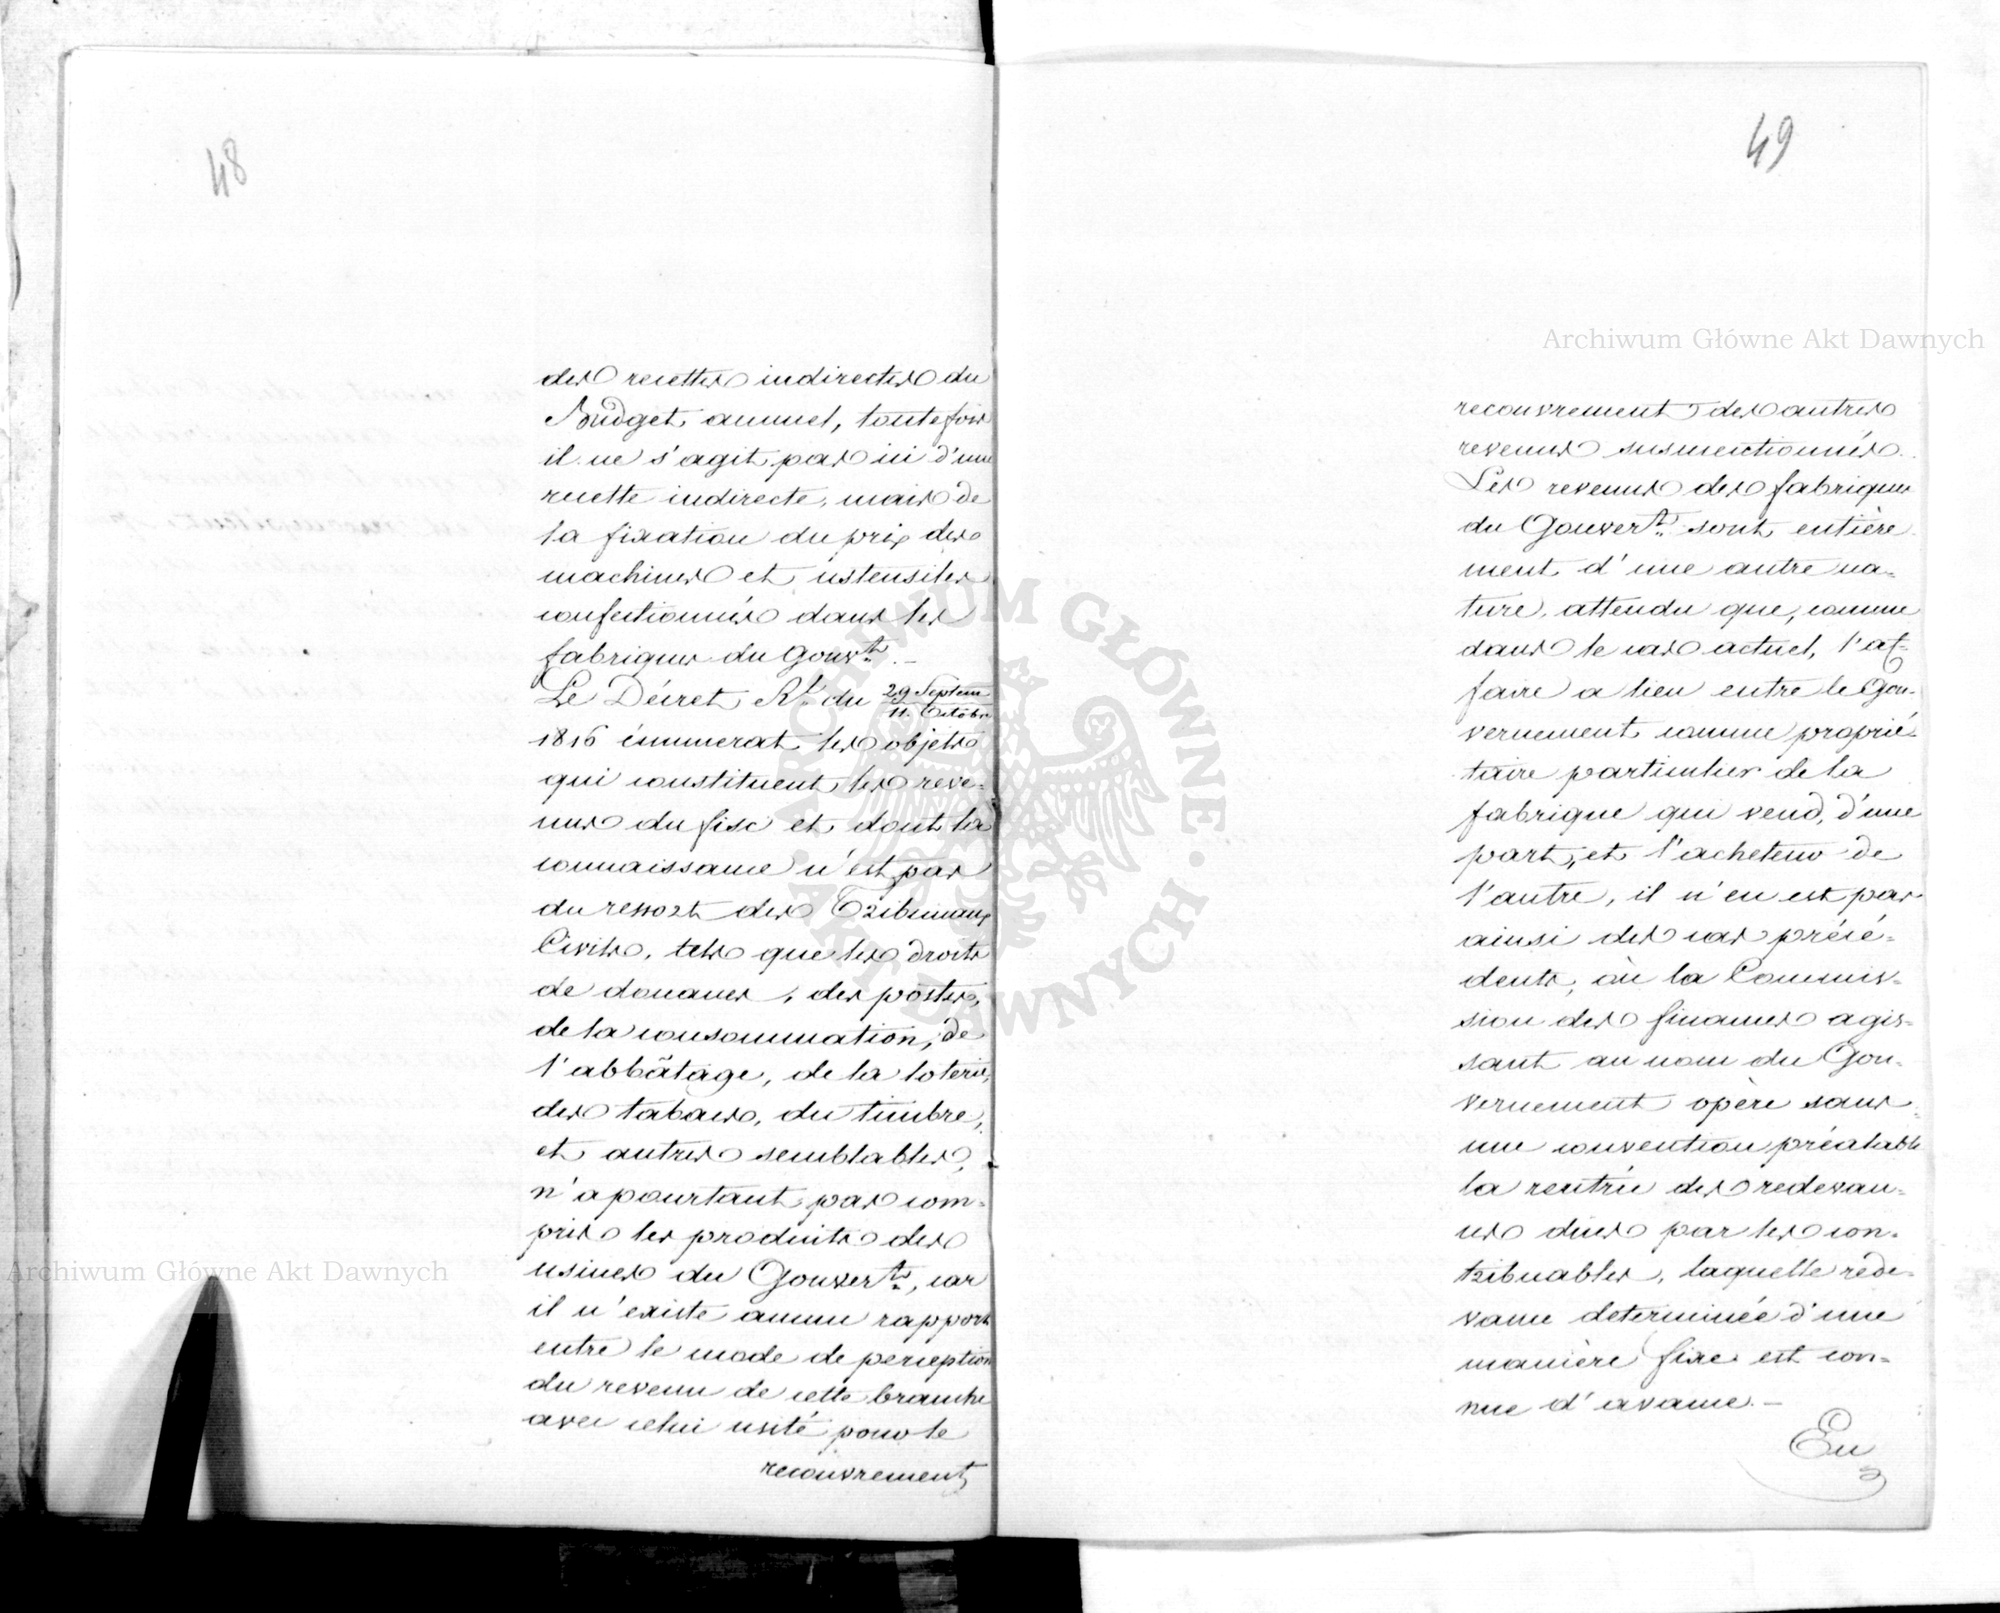 48
des recettes indirectes du
Budget annuel, toutefois
il ne s'agit pas ici d'une
recette indirecte, mais de
la fixation du prix des
machines et ustensiles
confectionnés dans les
fabriques du Gouvt. –
Le Décret Rl. du 29 Septem / 11 Octobr
1816 énumerat les objets
qui constituent les reve-
nus du fisc et dont la
connaissance n'est pas
du ressort des Tribunaux
Civils, tels que les droits
de douanes, des postes,
de la consommation, de
l'abbâtage, de la loterie,
des tabacs, du timbre,
et autres semblables,
n'a pourtant pas com-
pris les produits des
usines du Gouvert., car
il n'existe aucun rapport
entre le mode de perception
du revenu de cette branche
avec celui usité pour le
recouvrement
49
recouvrement des autres
revenus susmentionnés.
Les revenus des fabriques
du Gouvert. sont entière
ment d'une autre na-
ture, attendu que, comme
dans le cas actuel, l'af-
faire a lieu entre le Gou-
vernement comme proprié-
taire particulier de la
fabrique qui vend, d'une
part, et l'acheteur de
l'autre, il n'en est pas
ainsi des cas précé-
dents, où la Commis-
sion des finances agis-
sant au nom du Gou-
vernement opère sans
une convention préalable
la rentrée des redevan-
ces dues par les con-
tribuables, laquelle rede-
vance determinée d'une
manière fixe est con-
nue d'avance. –
En
Archiwum Główne Akt Dawnych
Archiwum Główne Akt Dawnych
ARCHIWUM GŁÓWNE · AKT DAWNYCH ·